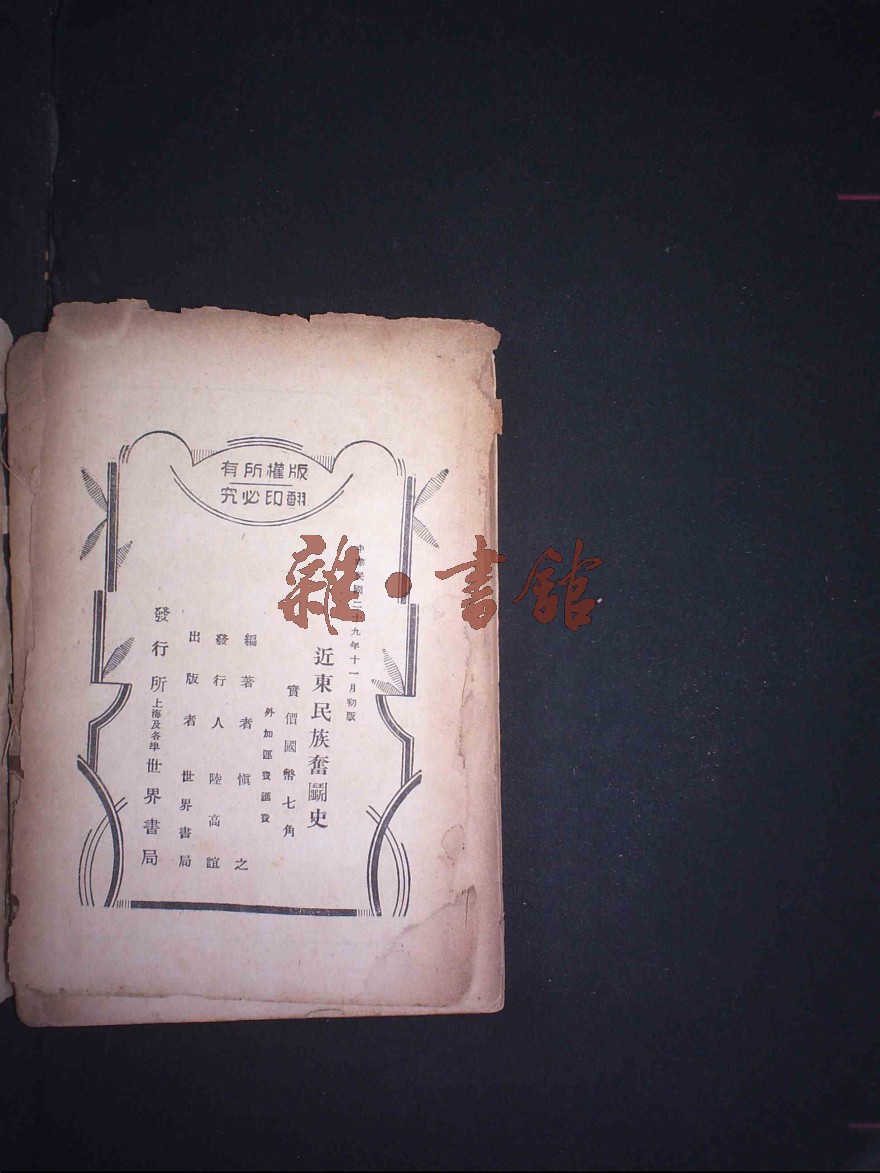 版權所有
翻印必究
中華民國二十九年十一月初版
近東民族奮鬭史
實價國幣七角
外加運費匯費
編著者 愼之
發行人 陸高誼
出版者 世界書局
發行所 上海及各埠 世界書局
雜·書館